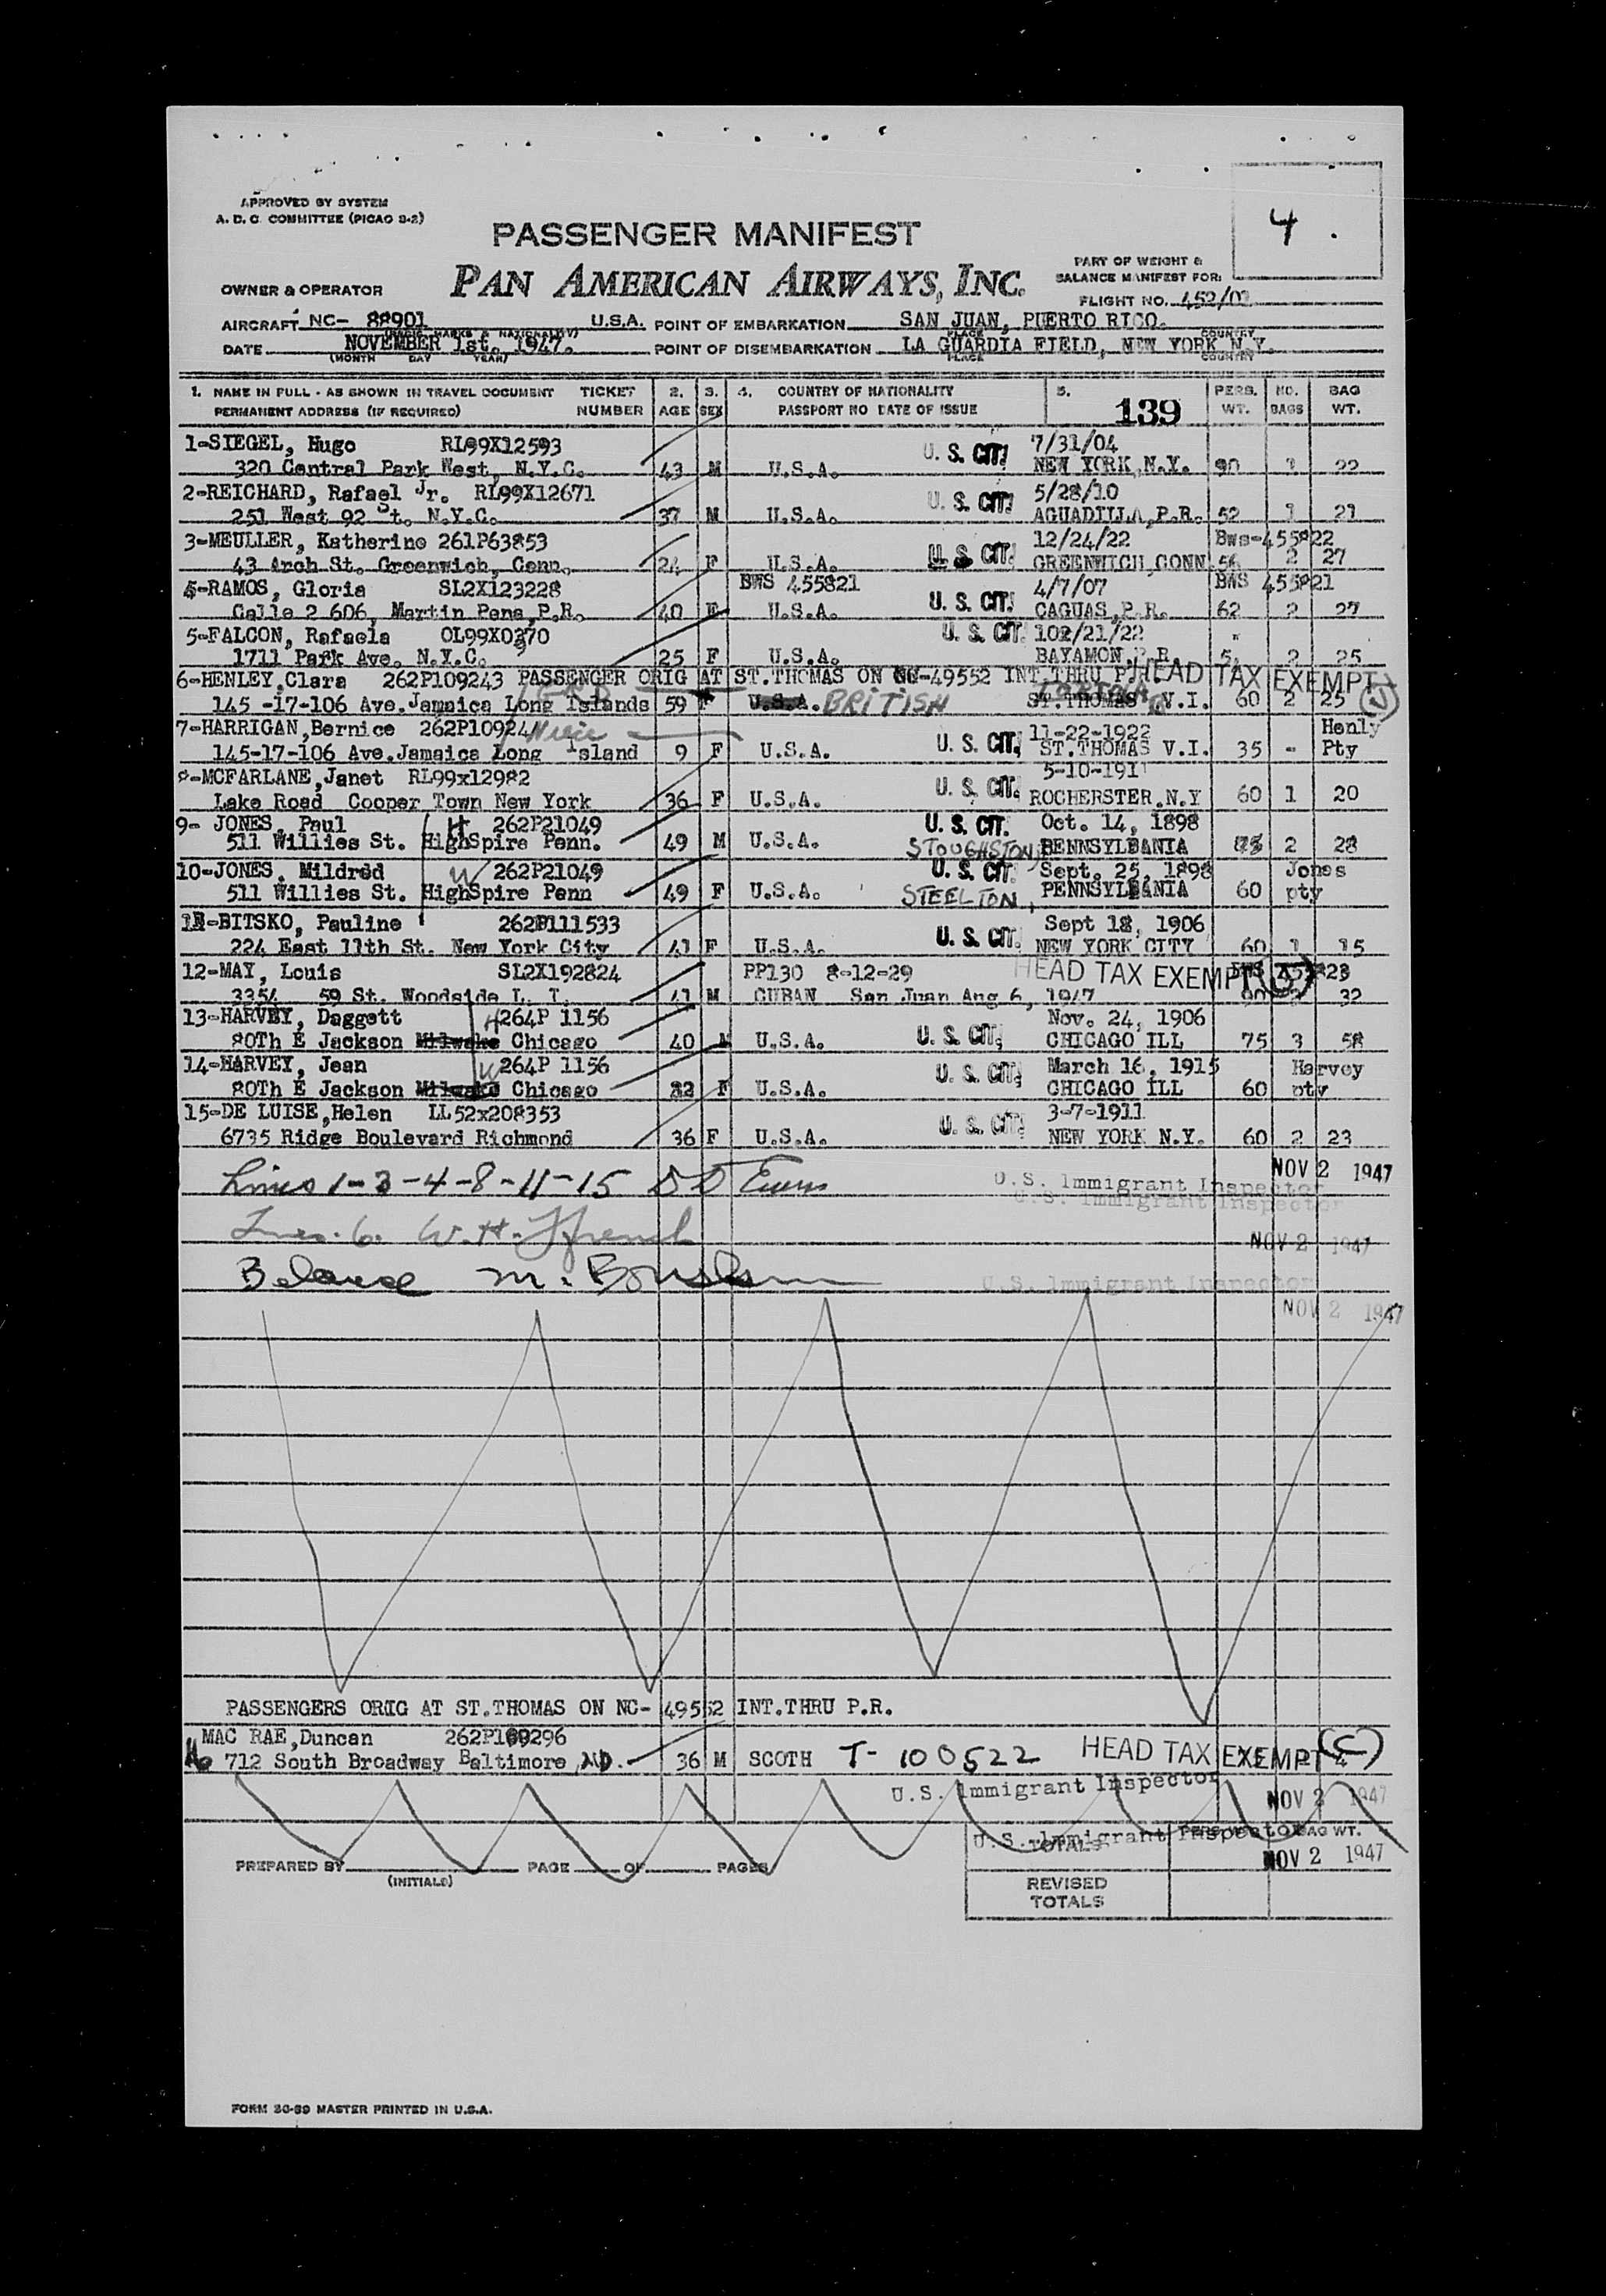 APPROVED BY SYSTEM
A. D. C. COMMITTEE (PICAO 3-2)
4.
PASSENGER MANIFEST
PART OF WEIGHT &
BALANCE MANIFEST FOR:
OWNER & OPERATOR PAN AMERICAN AIRWAYS, INC.
FLIGHT NO. 452/0
AIRCRAFT NC- 88901 U.S.A. POINT OF EMBARKATION SAN JUAN, PUERTO RICO.
PLACE COUNTRY
DATE NOVEMBER 1st. 1947. POINT OF DISEMBARKATION LA GUARDIA FIELD, NEW YORK N.Y.
(MONTH DAY YEAR) PLACE COUNTRY
1. NAME IN FULL - AS SHOWN IN TRAVEL DOCUMENT TICKET 2. 3. 4. COUNTRY OF NATIONALITY 5. PERS. NO. BAG
PERMANENT ADDRESS (IF REQUIRED) NUMBER AGE SEX PASSPORT NO DATE OF ISSUE 139 WT. BAGS WT.
1-SIEGEL, Hugo RL99X12593 U. S. CIT. 7/31/04
320 Central Park West, N.Y.C. 43 M U.S.A. NEW YORK, N.Y. 90 1 22
2-REICHARD, Rafael Jr. RL99X12671 U. S. CIT. 5/28/10
251 West 92 St. N.Y.C. 37 M U.S.A. AGUADILLA, P.R. 52 1 21
3-MEULLER, Katherine 261P63853 U. S. CIT. 12/24/22 Bws-455822
43 Arch St. Greenwich, Conn. 24 F U.S.A. GREENWICH, CONN 56 2 27
4-RAMOS, Gloria SL2X123228 BWS 455821 4/7/07 BWS 455821
Calle 2 606, Martin Pena, P.R. 40 F U.S.A. U. S. CIT. CAGUAS, P.R. 62 2 27
5-FALCON, Rafaela OL99X0370 U. S. CIT. 102/21/22
1711 Park Ave. N.Y.C. 25 F U.S.A. BAYAMON, P.R. 2 25
6-HENLEY, Clara 262P109243 PASSENGER ORIG AT ST.THOMAS ON NC-49552 INT.THRU P.R. HEAD TAX EXEMPT
145 -17-106 Ave. Jamaica Long Islands 59 F U.S.A. BRITISH ST.THOMAS V.I. 60 2 25
7-HARRIGAN, Bernice 262P10924 Niece 11-22-1922 Henly
145-17-106 Ave. Jamaica Long Island 9 F U.S.A. U. S. CIT. ST.THOMAS V.I. 35 - Pty
8-MCFARLANE, Janet RL99x12982 U. S. CIT. 5-10-1911
Lake Road Cooper Town New York 36 F U.S.A. ROCHERSTER. N.Y 60 1 20
9- JONES, Paul H 262P21049 U. S. CIT. Oct. 14, 1898
511 Willies St. HighSpire Penn. 49 M U.S.A. STOUGHSTON, PENNSYLBANIA 2 28
10-JONES, Mildred W 262P21049 U. S. CIT. Sept. 25, 1898 Jones
511 Willies St. HighSpire Penn 49 F U.S.A. STEELTON, PENNSYLBANIA 60 pty
11-BITSKO, Pauline 262P111533 U. S. CIT. Sept 18, 1906
224 East 11th St. New York City 41 F U.S.A. NEW YORK CITY 60 1 15
12-MAY, Louis SL2X192824 PP130 8-12-29 HEAD TAX EXEMPT
3354 59 St. Woodside L. I. 41 M CUBAN San Juan Aug 6, 1947 90 32
13-HARVEY, Daggett H 264P 1156 U. S. CIT. Nov. 24, 1906
80Th E Jackson Chicago 40 M U.S.A. CHICAGO ILL 75 3 58
14-HARVEY, Jean W 264P 1156 U. S. CIT. March 16, 1915 Harvey
80Th E Jackson Chicago 32 F U.S.A. CHICAGO ILL 60 pty
15-DE LUISE, Helen LL52x208353 U. S. CIT. 3-7-1911
6735 Ridge Boulevard Richmond 36 F U.S.A. NEW YORK N.Y. 60 2 23
Lines 1-3-4-8-11-15 U.S. Immigrant Inspector NOV 2 1947
U.S. Immigrant Inspector
Lines. 6. W.H. NOV 2 1947
Balance M. U.S. Immigrant Inspector
NOV 2 1947
PASSENGERS ORIG AT ST.THOMAS ON NC- 49552 INT.THRU P.R.
MAC RAE, Duncan 262P109296
712 South Broadway Baltimore, MD. 36 M SCOTH T- 100522 HEAD TAX EXEMPT (C)
U.S. Immigrant Inspector NOV 2 1947
U.S. Immigrant Inspector BAG WT.
TOTALS NOV 2 1947
PREPARED BY PAGE OF PAGES
(INITIALS)
REVISED
TOTALS
FORM 30-39 MASTER PRINTED IN U.S.A.